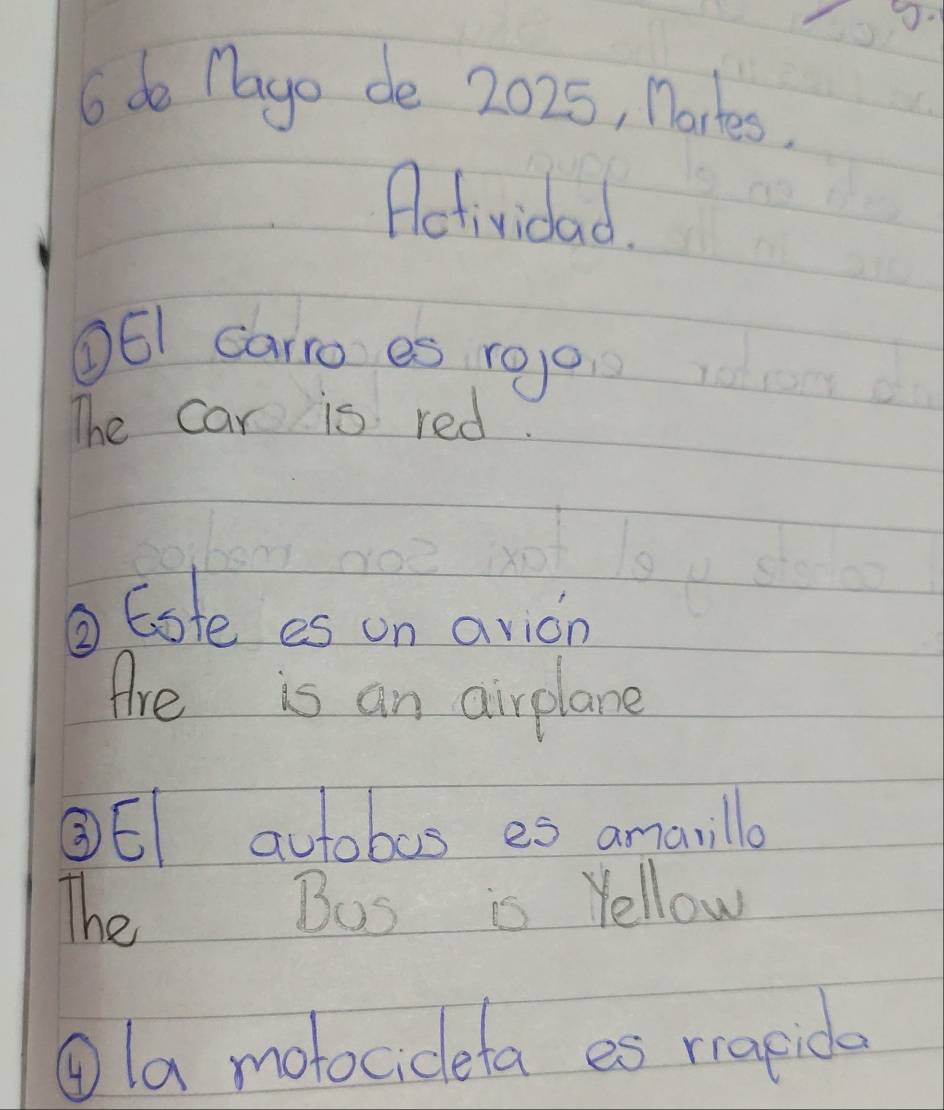 6 de Mayo de 2025, Martes.
Actividad.
① El carro es rojo
The car is red.
② Este es un avión
Are is an airplane
③ El autobus es amarillo
The Bus is Yellow
④ la motocicleta es rrapida